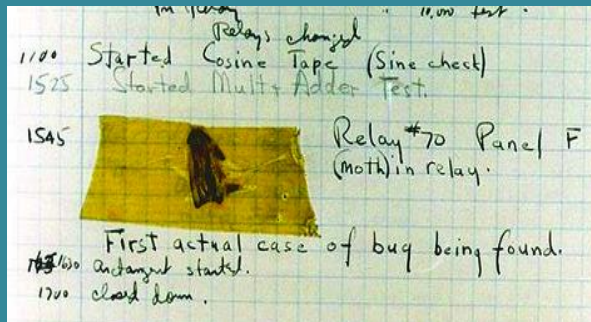 in relay " " 10,000 test.
Relays changed
1100 Started Cosine Tape (Sine check)
1525 Started Mult + Adder Test.
1545 Relay #70 Panel F
(moth) in relay.
First actual case of bug being found.
1630 arctangent started.
1700 closed down.